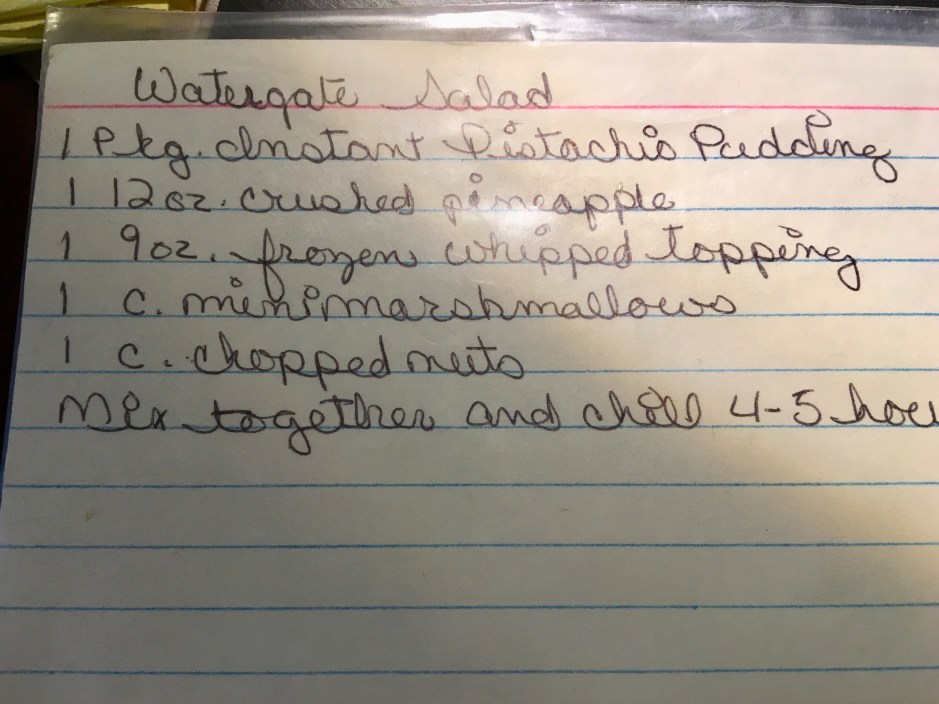 Watergate Salad
1 Pkg. Instant Pistachio Pudding
1 12 oz. crushed pineapple
1 9 oz. frozen whipped topping
1 c. mini marshmallows
1 c. chopped nuts
Mix together and chill 4-5